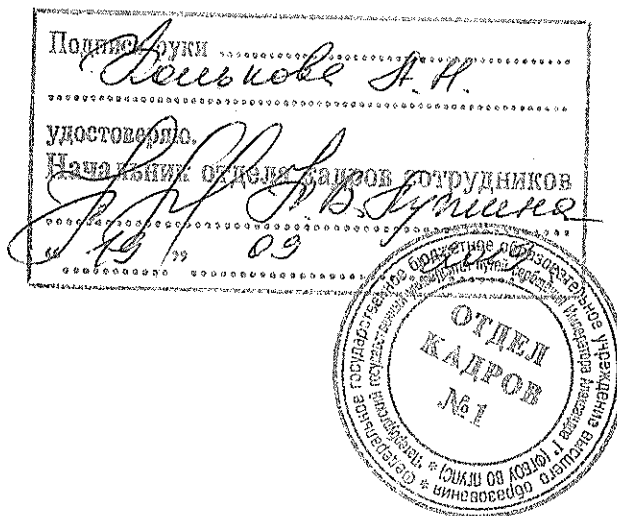 Подпись руки
Конькова А.Н.
удостоверяю.
Начальник отдела кадров сотрудников
Н.В.
" 19 " 09
Федеральное государственное бюджетное образовательное учреждение высшего образования
Петербургский государственный университет путей сообщения Императора Александра I" (ФГБОУ ВО ПГУПС)
ОТДЕЛ
КАДРОВ
№1